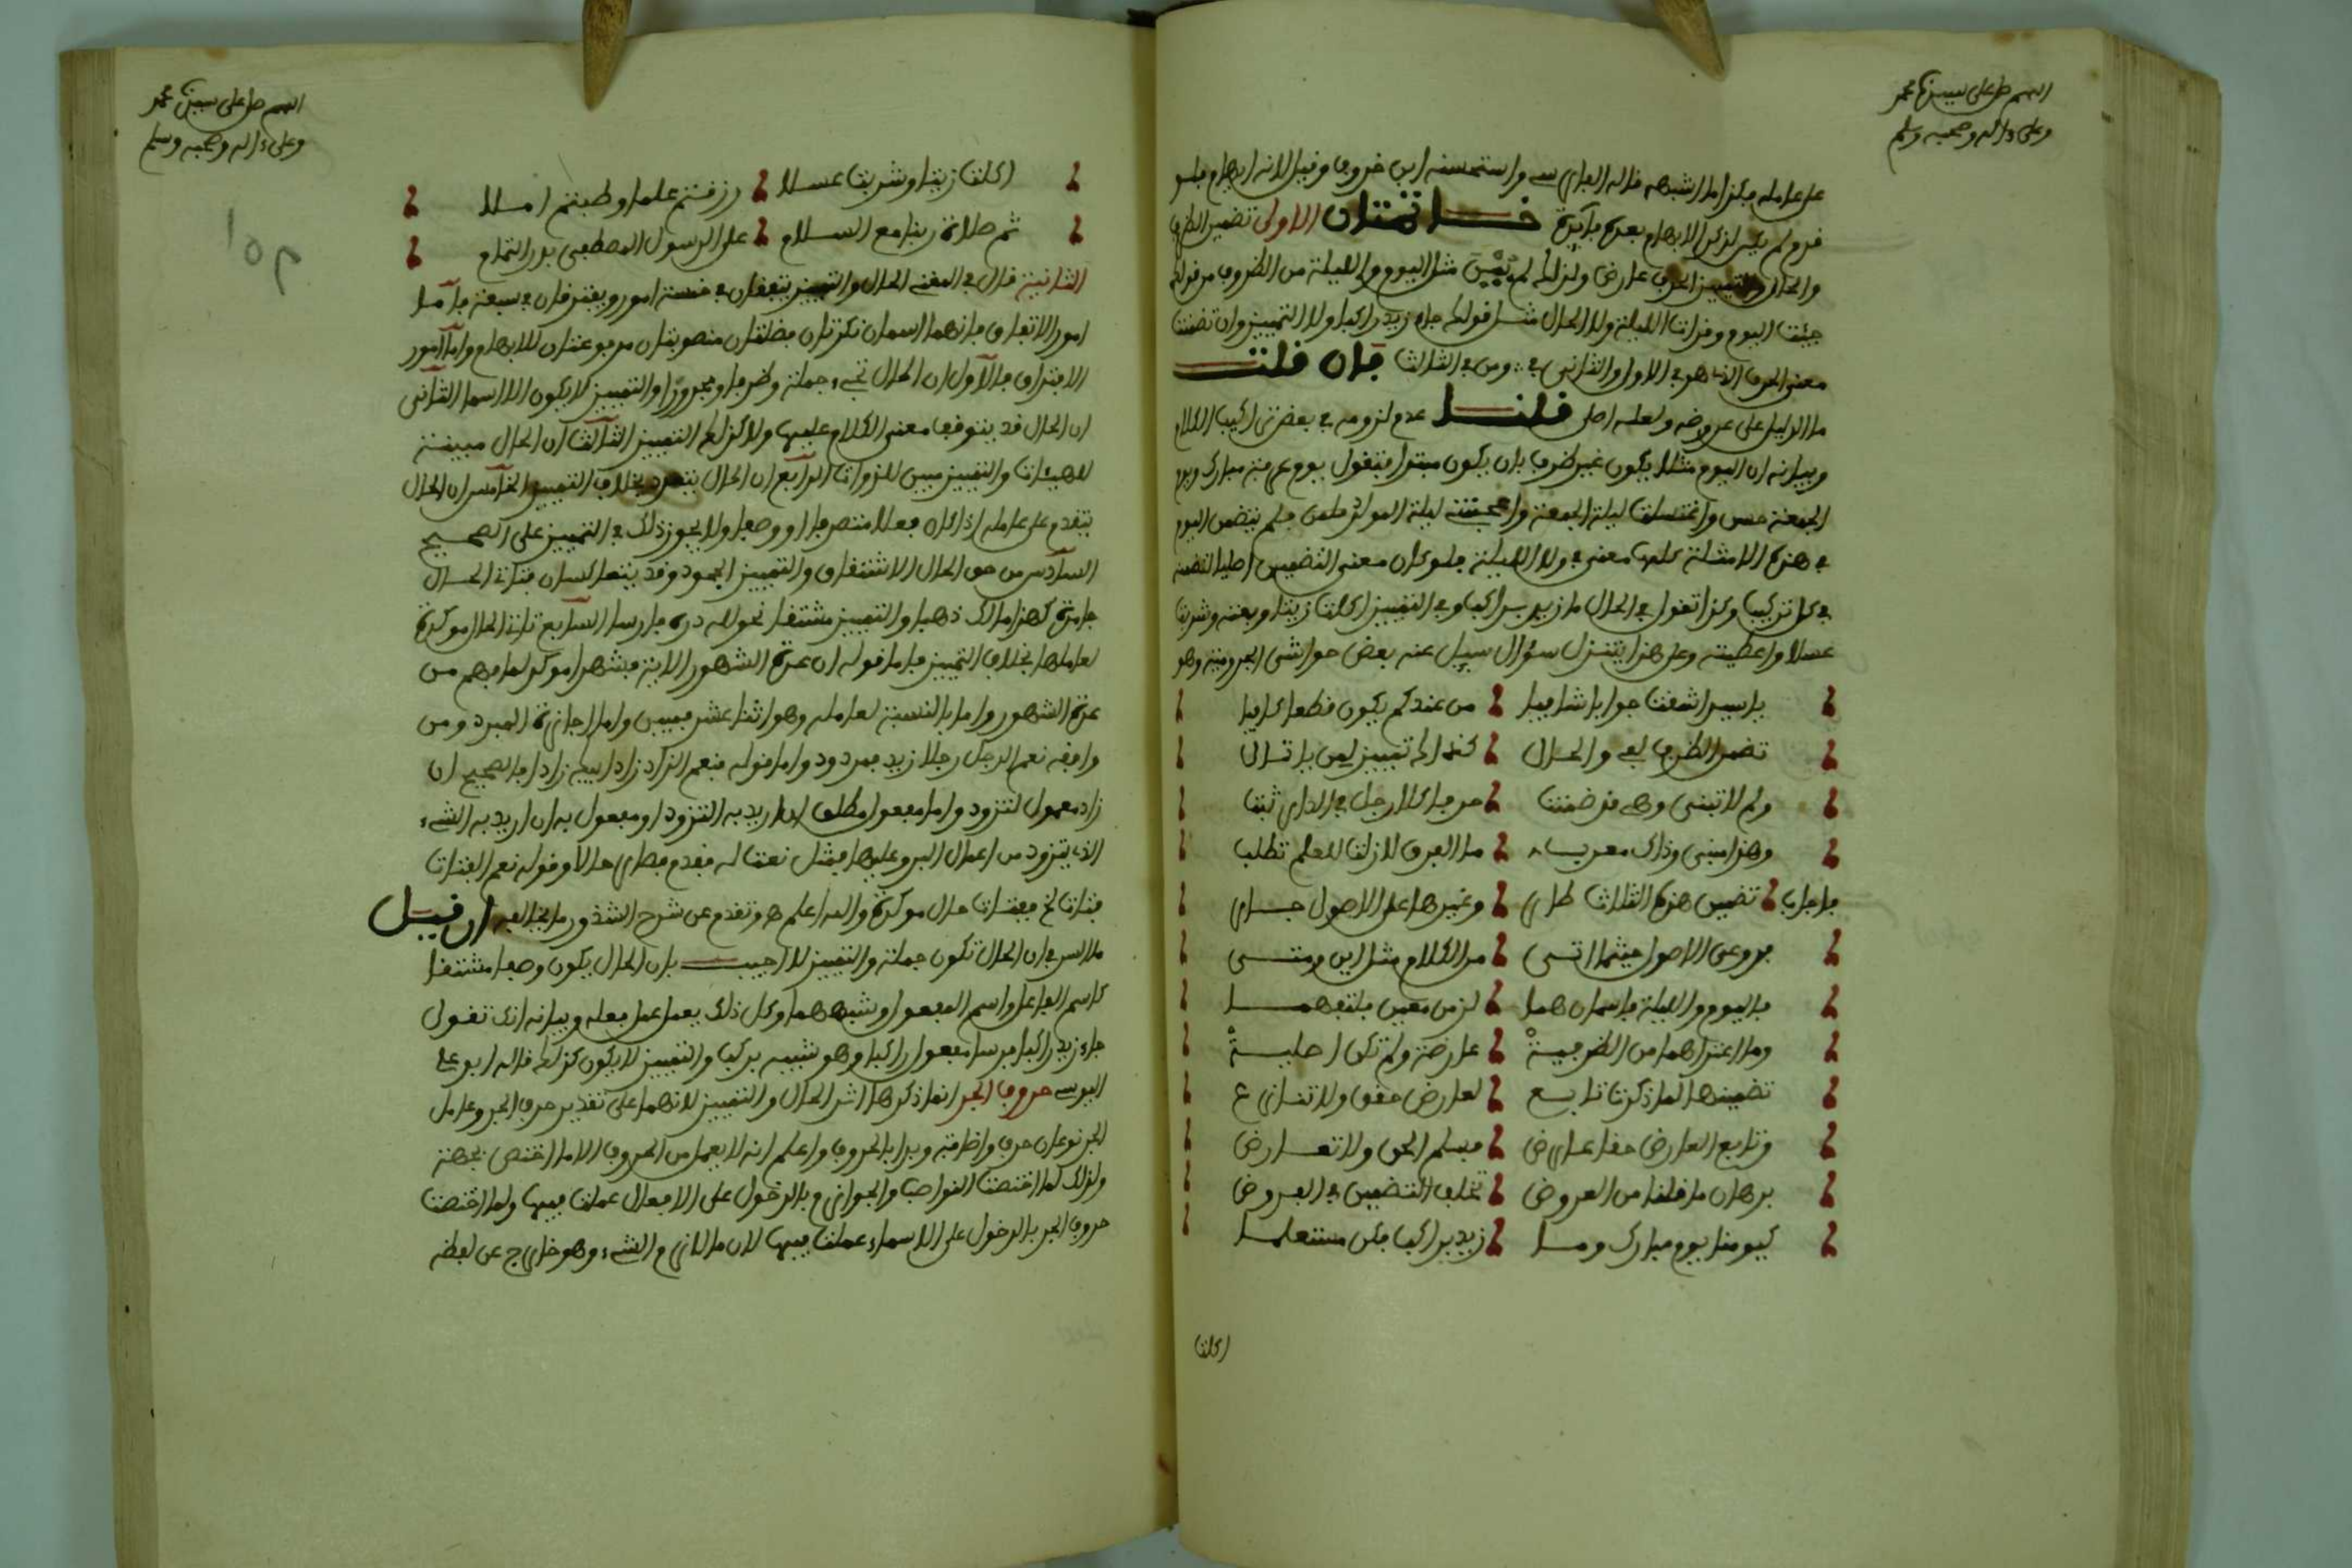 اللهم صل على سيدنا محمد
وعلى ءاله وصحبه وسلم
على عامله فكذا ما اشبهه قاله الفارسي واستحسنه ابن خروف وقيل لانه ابهام فلو
قدم لم يكن لذكر الابهام بعده فائدة خاتمتان الاولى تضمين الظرف
والحال والتمييز الحرف عارض ولذلك لم تبن مثل اليوم والليلة من الظروف من قولك
جئت اليوم وقرات الليلة ولا الحال مثل قولك جاء زيد راكبا ولا التمييز وان تضمنت
معنى الحرف الذي هو في الاول والثاني في ومن في الثالث فان قلت
ما الدليل على عروضه ولعله اصلي قلنا عدم لزومه في بعض تراكيب الكلام
وبيانه ان اليوم مثلا يكون غير ظرف بان يكون مبتدا فتقول يوم عرفة مبارك ويوم
الجمعة حسن واغتسلت ليلة الجمعة واعجبتني ليلة المولد فلم يتضمن اليوم
في هذه الامثلة كلها معنى في ولا الليلة فلو كان معنى التضمين اصليا لتضمنه
في كل تركيب وكذا تقول في الحال ما زيد براكب وفي التمييز اكلت زيتا وبعته وشربت
عسلا واعطيته وعلى هذا يتنزل سؤال سيل عنه بعض حواشي الجرومية وهو
يا سيدا شفت جوابا شافيا من عندكم يكون قطعا كافيا
تضمن الظرف لفي والحال كذلك تمييز لمن يا تالي
ولم لا تبنى وهي قد ضمنت حرفا كلا رجل في الدار ثبت
وهذا مبني وذاك معرب ما الفرق لا زلت للعلم تطلب
فاجاب تضمين هذه الثلاث طاري وغيرها على الاصول جاري
فروعي الاصول حيثما اتى من الكلام مثل اين ومتى
فاليوم والليلة فاسمان هما لزمن معين فلتفهما
وما اعتراهما من الظرفية عارضة ولم تكن اصلية
تضمينها لما ذكرت تابع لعارض حقق ولا تنازع
وتابع العارض حقا عارض فسلم الحق ولا تعارض
برهان ما قلنا من العروض تخلف التضمين في العروض
كيومنا يوم مبارك وما زيد براكب فكن مستعلما
اكلت
اللهم صل على سيدنا محمد
وعلى ءاله وصحبه وسلم
اكلت زيتا وشربت عسلا رزقتم علما وطبتم املا
ثم صلاة ربنا مع السلام على الرسول المصطفى بدر التمام
الثانية قال في المغني الحال والتمييز يتفقان في خمسة امور ويفترقان في سبعة فاما
امور الاتفاق فانهما اسمان نكرتان فضلتان منصوبتان مرفوعتان للابهام واما امور
الافتراق فالاول ان الحال تجيء جملة وظرفا ومجرورا والتمييز لا يكون الا اسما الثاني
ان الحال قد يتوقف معنى الكلام عليها ولا كذلك التمييز الثالث ان الحال مبينة
للهيئات والتمييز مبين للذوات الرابع ان الحال يتعدد بخلاف التمييز الخامس ان الحال
يتقدم على عامله اذا كان فعلا متصرفا او وصفا ولا يجوز ذلك في التمييز على الصحيح
السادس من حق الحال الاشتقاق والتمييز الجمود وقد يتعاكسان فتاتي الحال
جامدة كهذا مالك ذهبا والتمييز مشتقا نحو لله دره فارسا السابع تاتي الحال موكدة
لعاملها بخلاف التمييز فاما قوله ان عدة الشهور الاية فشهرا موكد لما فهم من
عدة الشهور واما بالنسبة لعامله وهو اثنا عشر فمبين واما اجازة المبرد ومن
وافقه نعم الرجل رجلا زيد فمردود واما قوله فنعم الزاد زاد ابيك زادا فالصحيح ان
زادا معمول لتزود واما مفعول مطلق ان اريد به التزود او مفعول به ان اريد به الشيء
الذي يتزود من اعمال البر وعليهما فمثل نعت له فقدم فصار حالا وقوله نعم الفتاة
فتاة الخ ففتاة حال موكدة والله اعلم هـ وتقدم عن شرح الشذور ما يخالفه ان قيل
ما السر في ان الحال تكون جملة والتمييز لا اجيب بان الحال يكون وصفا مشتقا
كاسم الفاعل واسم المفعول وشبههما وكل ذلك يعمل عمل فعله وبيانه انك تقول
جاء زيد راكبا فرسا فمعمول راكبا وهو شبيه يركب والتمييز لا يكون كذلك قاله ابو علي
اليوسي حروف الجر انما ذكرها اثر الحال والتمييز لانهما على تقدير حرف الجر وعامل
الجر نوعان حرف واضافة وبدا بالحروف واعلم انه لا يعمل من الحروف الا ما اختص بجهة
ولذلك لما اختصت النواصب والجوازم بالدخول على الافعال عملت فيها ولما اختصت
حروف الجر بالدخول على الاسماء عملت فيها لان ما لازم الشيء وهو خارج عن لفظه